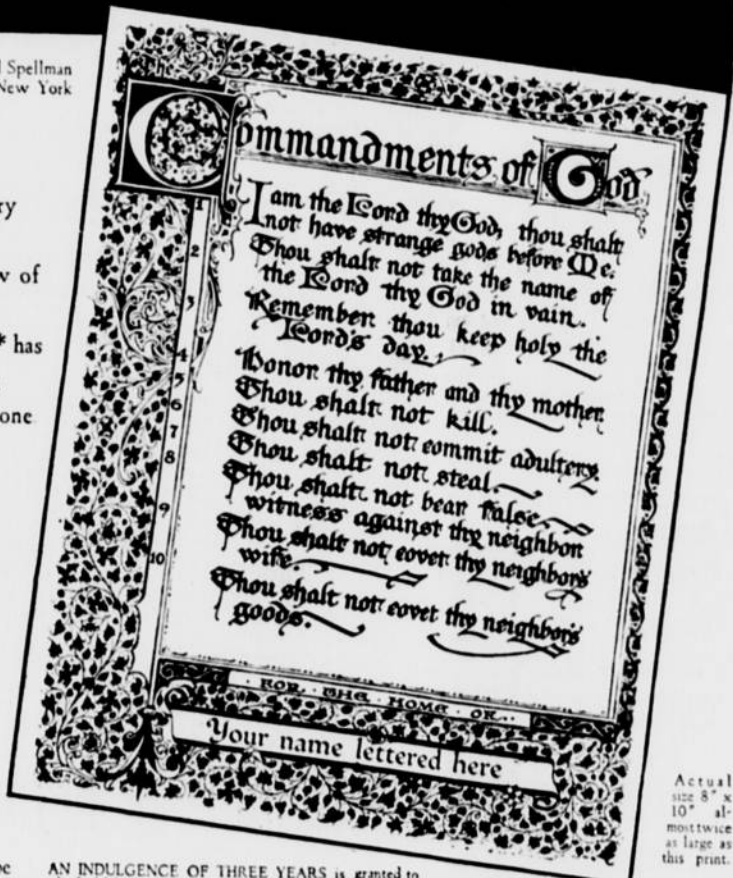 l Spellman
New York
ry
w of
* has
one
The
Commandments of God
1 I am the Lord thy God, thou shalt
not have strange gods before Me.
2 Thou shalt not take the name of
the Lord thy God in vain.
3 Remember thou keep holy the
Lord's day.
4 Honor thy father and thy mother.
5 Thou shalt not kill.
6 Thou shalt not commit adultery.
7 Thou shalt not steal.
8 Thou shalt not bear false
witness against thy neighbor
9 Thou shalt not covet thy neighbor's
wife
10 Thou shalt not covet thy neighbor's
goods.
FOR THE HOME OF
Your name lettered here
Actual
size 8" x
10" al-
most twice
as large as
this print.
AN INDULGENCE OF THREE YEARS is granted to